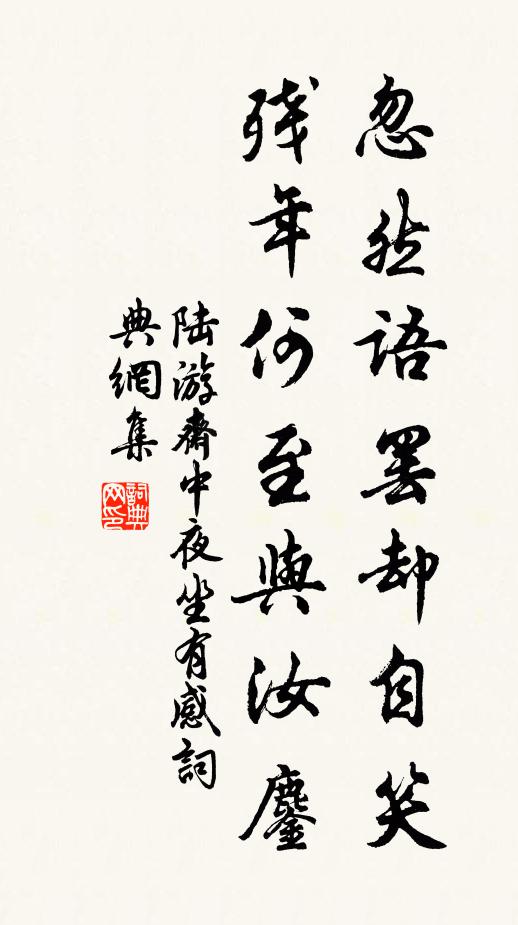 忽然語罷却自笑
殘年何至與汝鏖
陸游齋中夜坐有感詞
典網集
詞典網印